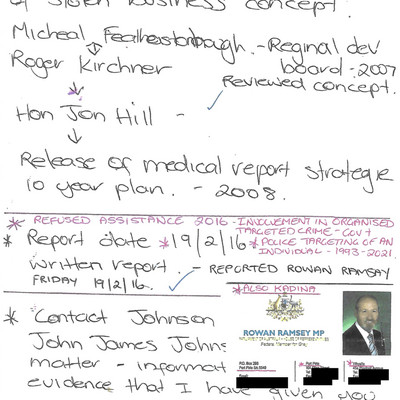 of stolen business concept.
Micheal Featherstonhaugh. - Reginal dev
board - 2007
Roger Kirchner
Reviewed concept.
Hon Jon Hill -
Release of medical report strategie
10 year plan. - 2008.
* REFUSED ASSISTANCE 2016 - INVOLVEMENT IN ORGANISED
TARGETED CRIME - GOVT
* Report date * 19/2/16 * POLICE TARGETING OF AN
INDIVIDUAL - 1993-2021.
written report. - REPORTED ROWAN RAMSAY
FRIDAY 19/2/16.
* ALSO KADINA
* Contact Johnson
John James Johns
matter - informat
evidence that I have given you
ROWAN RAMSEY MP
Federal Member for Grey
P.O. Box 296
Port Pirie SA 5540
Port Pirie